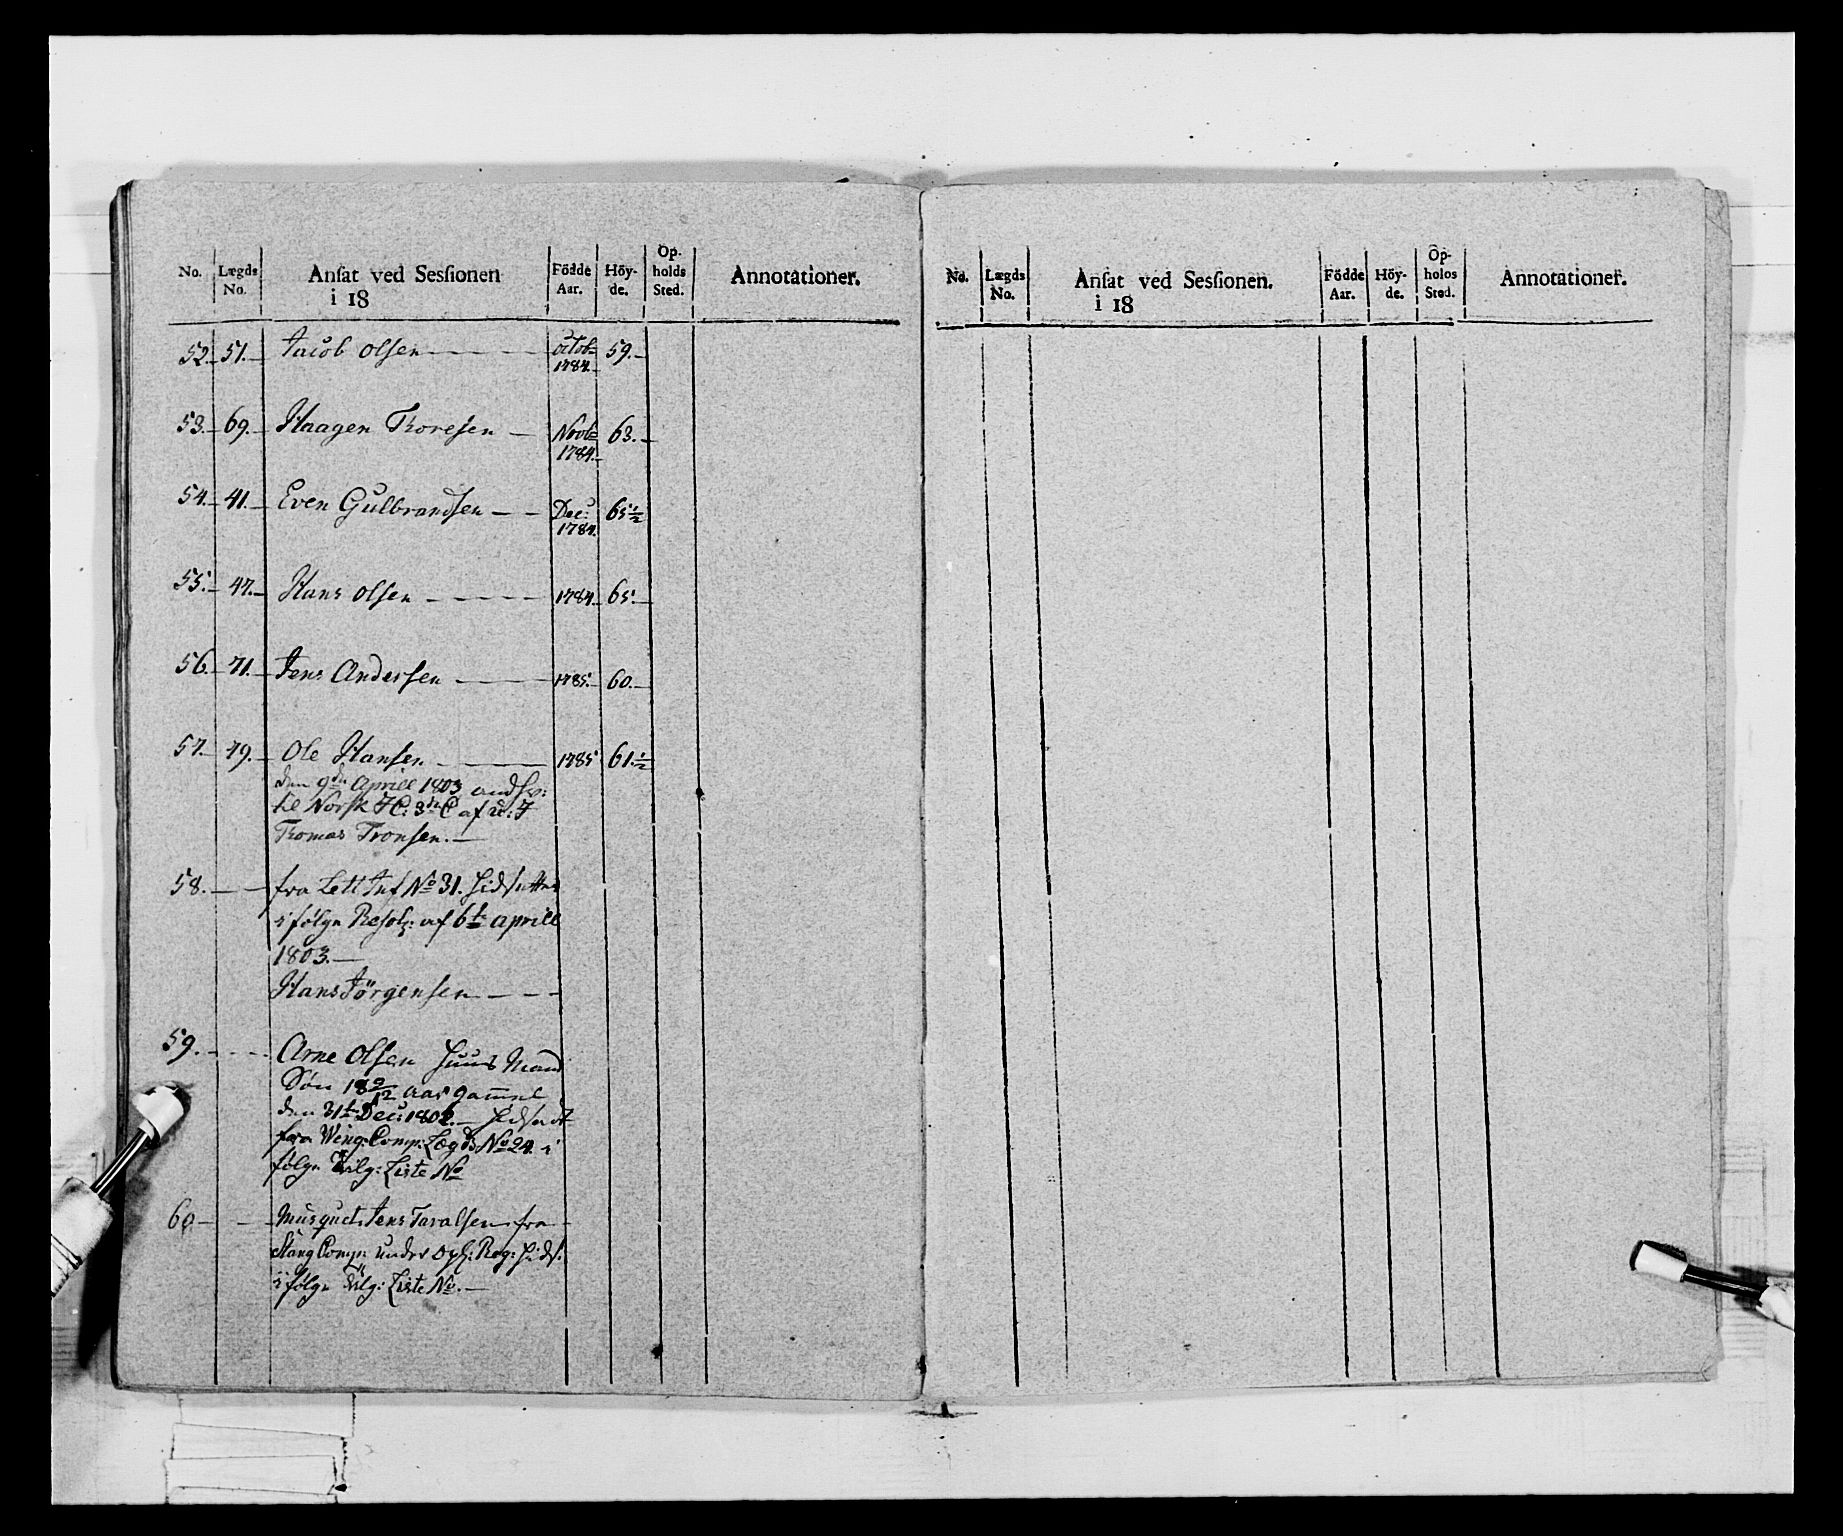 No. Lægds No. Ansat ved Sessionen i 18 Födde Aar. Höyde. Opholds Sted. Annotationer.
52. 51. Jacob Olsen Octob 1784. 59.
53. 69. Haagen Thoresen Novb 1784. 63.
54. 41. Even Gulbrandsen Dec: 1784. 65 1/2
55. 47. Hans Olsen 1784. 65.
56. 71. Jens Andersen 1785. 60.
57. 49. Ole Hansen 1785 61 1/2
den 9de Aprill 1803
til Norsk af
Thomas Tronsen.
58. fra Lett Inf No 31. hidsatt
i følge Resol: af 6te Aprill
1803.
Hans Jörgensen
59. Arne Olsen Huus Mand
Sön 18 9/12 aar gammel
den 31te Dec: 1802. hidsadt
fra Wing: Comp: Lægds No 24. i
følge Liste No
60 Musquet: Jens Taralsen fra
Stang Comp: under Opl: Reg: hids:
i følge Liste No.
No. Lægds No. Ansat ved Sessionen. i 18 Födde Aar. Höyde. Opholds Sted. Annotationer.